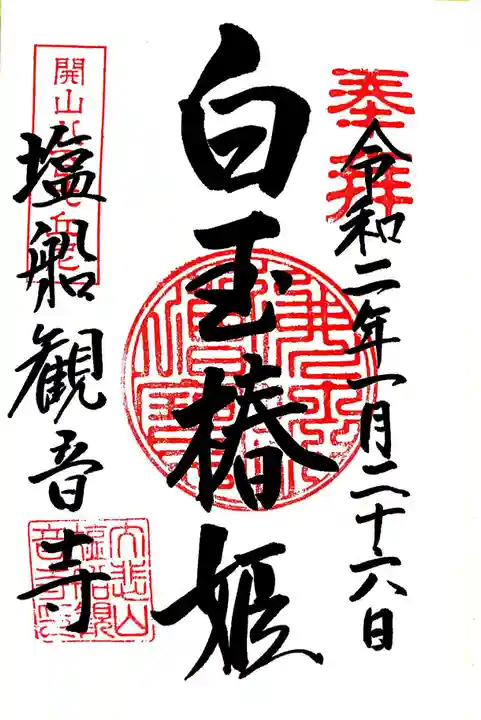 奉拝
令和二年一月二十六日
白玉椿姫
開山
塩船観音寺